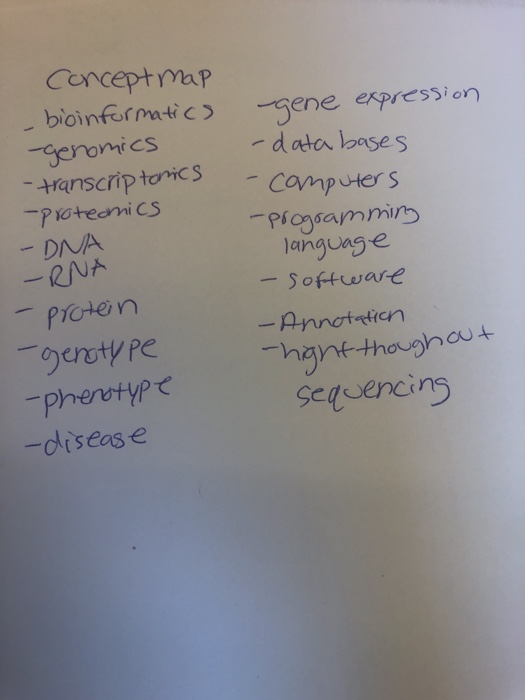 Conceptmap
- bioinformatics
- genomics
- transcriptomics
- proteomics
- DNA
- RNA
- protein
- genotype
- phenotype
- disease
- gene expression
- databases
- computers
- programming
language
- software
- Annotation
- hight-thoughout
sequencing